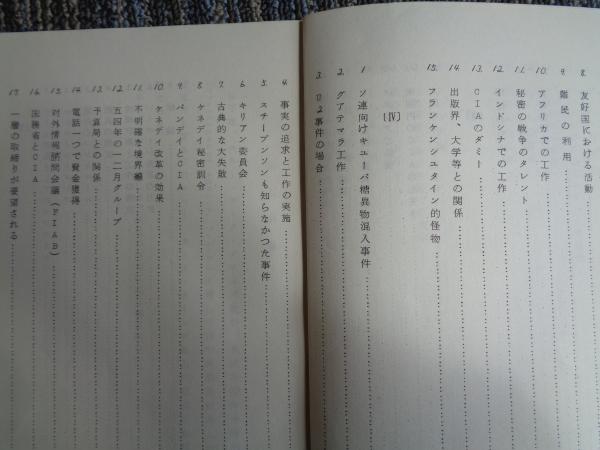 8. 友好国における活動
9. 難民の利用
10. アフリカでの工作
11. 秘密の戦争のタレント
12. インドシナでの工作
13. CIAのダミー
14. 出版界、大学等との関係
15. フランケンシュタイン的怪物
〔Ⅳ〕
1. ソ連向けキューバ糖異物混入事件
2. グアテマラ工作
3. U2事件の場合
4. 事実の追求と工作の実施
5. スチーブンソンも知らなかつた事件
6. キリアン委員会
7. 古典的な大失敗
8. ケネデイ秘密訓令
9. バンデイとCIA
10. ケネデイ改革の効果
11. 不明確な境界線
12. 五四年の一二月グループ
13. 予算局との関係
14. 電話一つで資金獲得
15. 対外情報諮問会議(FIAB)
16. 国務省とCIA
17. 一層の取締りが要望される